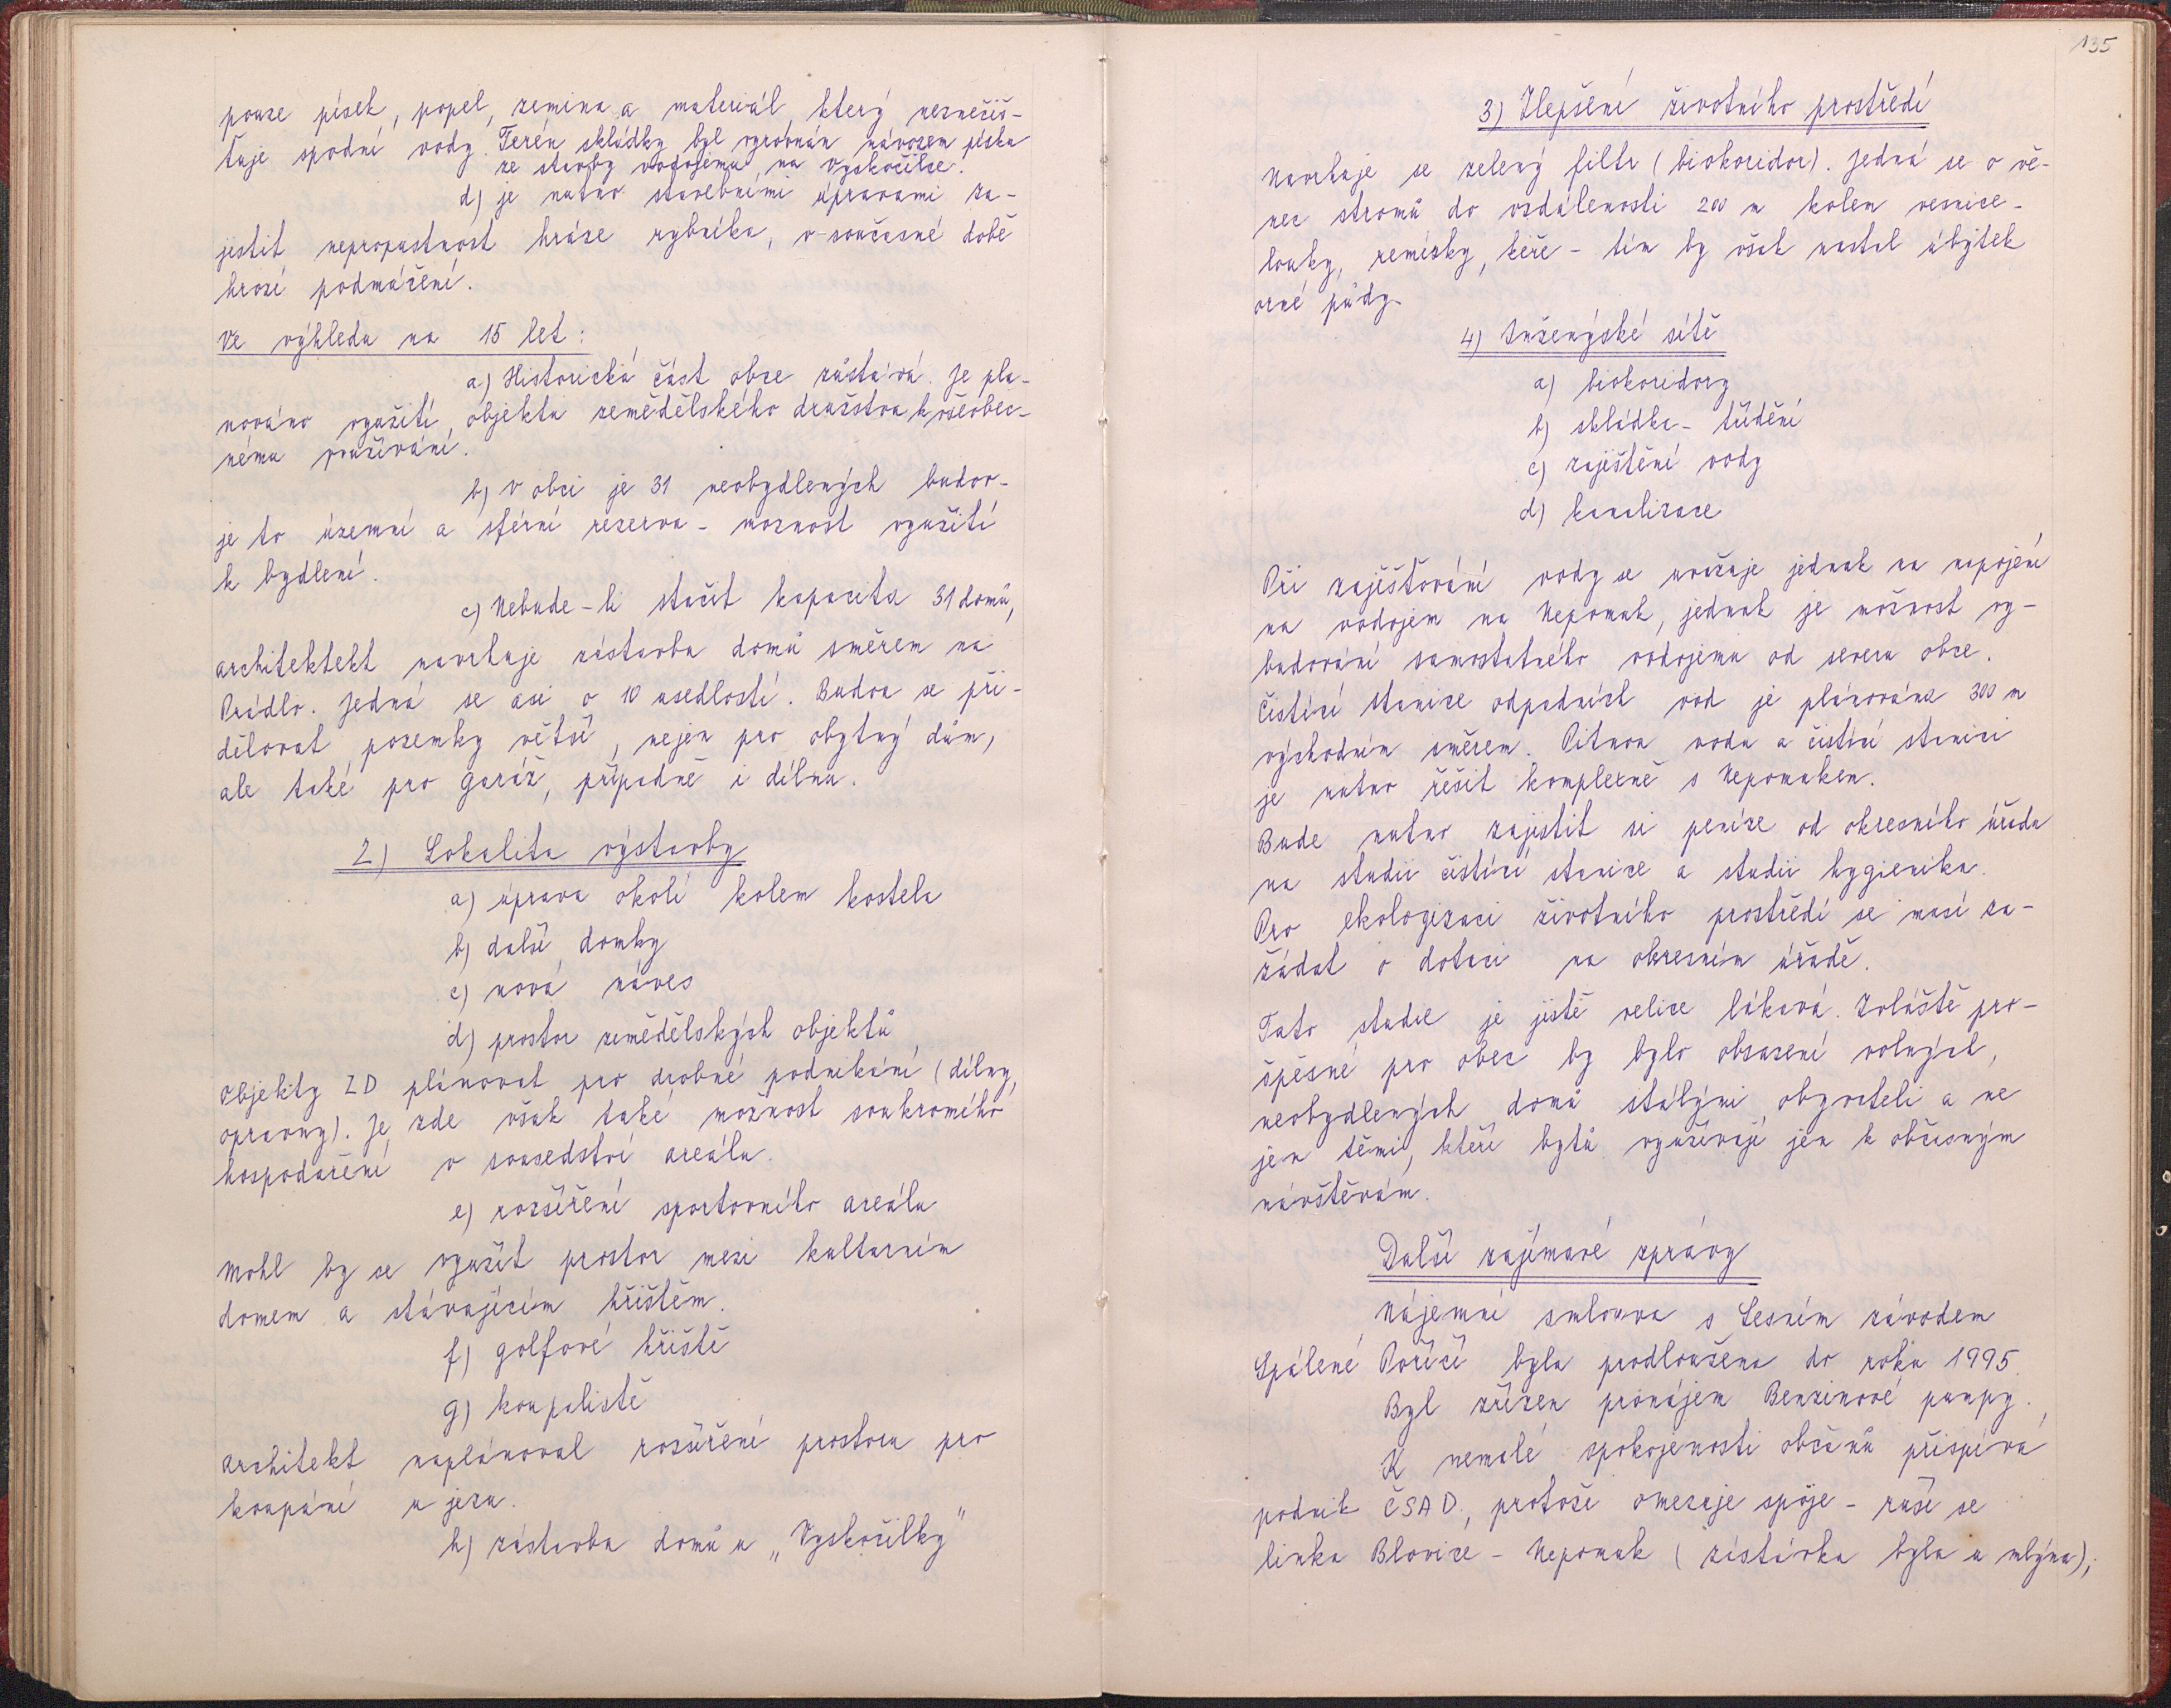 pouze písek, popel, zemina a materiál, který neznečiš-
ťuje spodní vody. Terén skládky byl vyrovnán návozem písku
ze stavby vodojemu, na Vyskočilce.
d) je nutno stavebními úpravami za-
jistit nepropustnost hráze rybníka, v současné době
hrozí podmáčení.
Ve výhledu na 15 let:
a) Historická část obce zůstává. Je pla-
nováno využití objektu zemědělského družstva k všeobec-
nému používání.
b) V obci je 31 neobydlených budov-
je to územní a sférní rezerva - moznost využití
k bydlení.
c) Nebude-li stačit kapacita 31 domů,
architektekt navrhuje zástavba domů směrem na
Prádlo. Jedná se asi o 10 usedlostí. Budou se při-
dělovat pozemky větší, nejen pro obytný dům,
ale také pro garáž, případně i dílnu.
2) Lokalita výstavby
a) úprava okolí kolem kostela
b) další domky
c) nová náves
d) prostor zemědělských objektů
Objekty ZD plánovat pro drobné podnikání (dílny,
opravny). Je zde však také možnost soukromého
hospodaření v sousedství areálu.
e) rozšíření sportovního areálu
Mohl by se využít prostor mezi kulturním
domem a stávajícím hřištěm.
f) golfové hřiště
g) koupaliště
Architekt naplánoval rozšíření prostoru pro
koupání u jezu.
h) zástavba domů u „Vyskočilky"
135
3) Zlepšení životního prostředí
Navrhuje se zelený filtr (biokoridor). Jedná se o vě-
nec stromů do vzdálenosti 200 m kolem vesnice-
louky, remízky, keře - tím by však nastal úbytek
orné půdy.
4) Inženýské sítě
a) biokoridory
b) skládka - třídění
c) zajištění vody
d) kanalizace
Při zajišťování vody se uvažuje jednak na napojení
na vodojem na Nepomuk, jednak je možnost vy-
budování samostatného vodojemu od severu obce.
Čistící stanice odpadních vod je plánována 300 m
východním směrem. Pitnou vodu a čistící stanici
je nutno řešit komplexně s Nepomukem.
Bude nutno zajistit si peníze od okresního úřadu
na studii čistící stanice a studii hygienika.
Pro ekologizaci životního prostředí se musí za-
žádat o dotaci na okresním úřadě.
Tato studie je jistě velice lákavá. Zvláště pro-
spěsné pro obec by bylo obsazení volných,
neobydlených domů stálými obyvateli a ne
jen těmi, kteří bytů využívají jen k občasným
návštěvám.
Další zajímavé zprávy
Nájemní smlouva s Lesním závodem
Spálené Poříčí byla prodloužena do roku 1995.
Byl zřízen pronájem Benzinové pumpy.
K nemalé spokojenosti občanů přispívá
podnik ČSAD, protože omezuje spoje - ruší se
linka Blovice - Nepomuk (zástávka byla u mlýna),